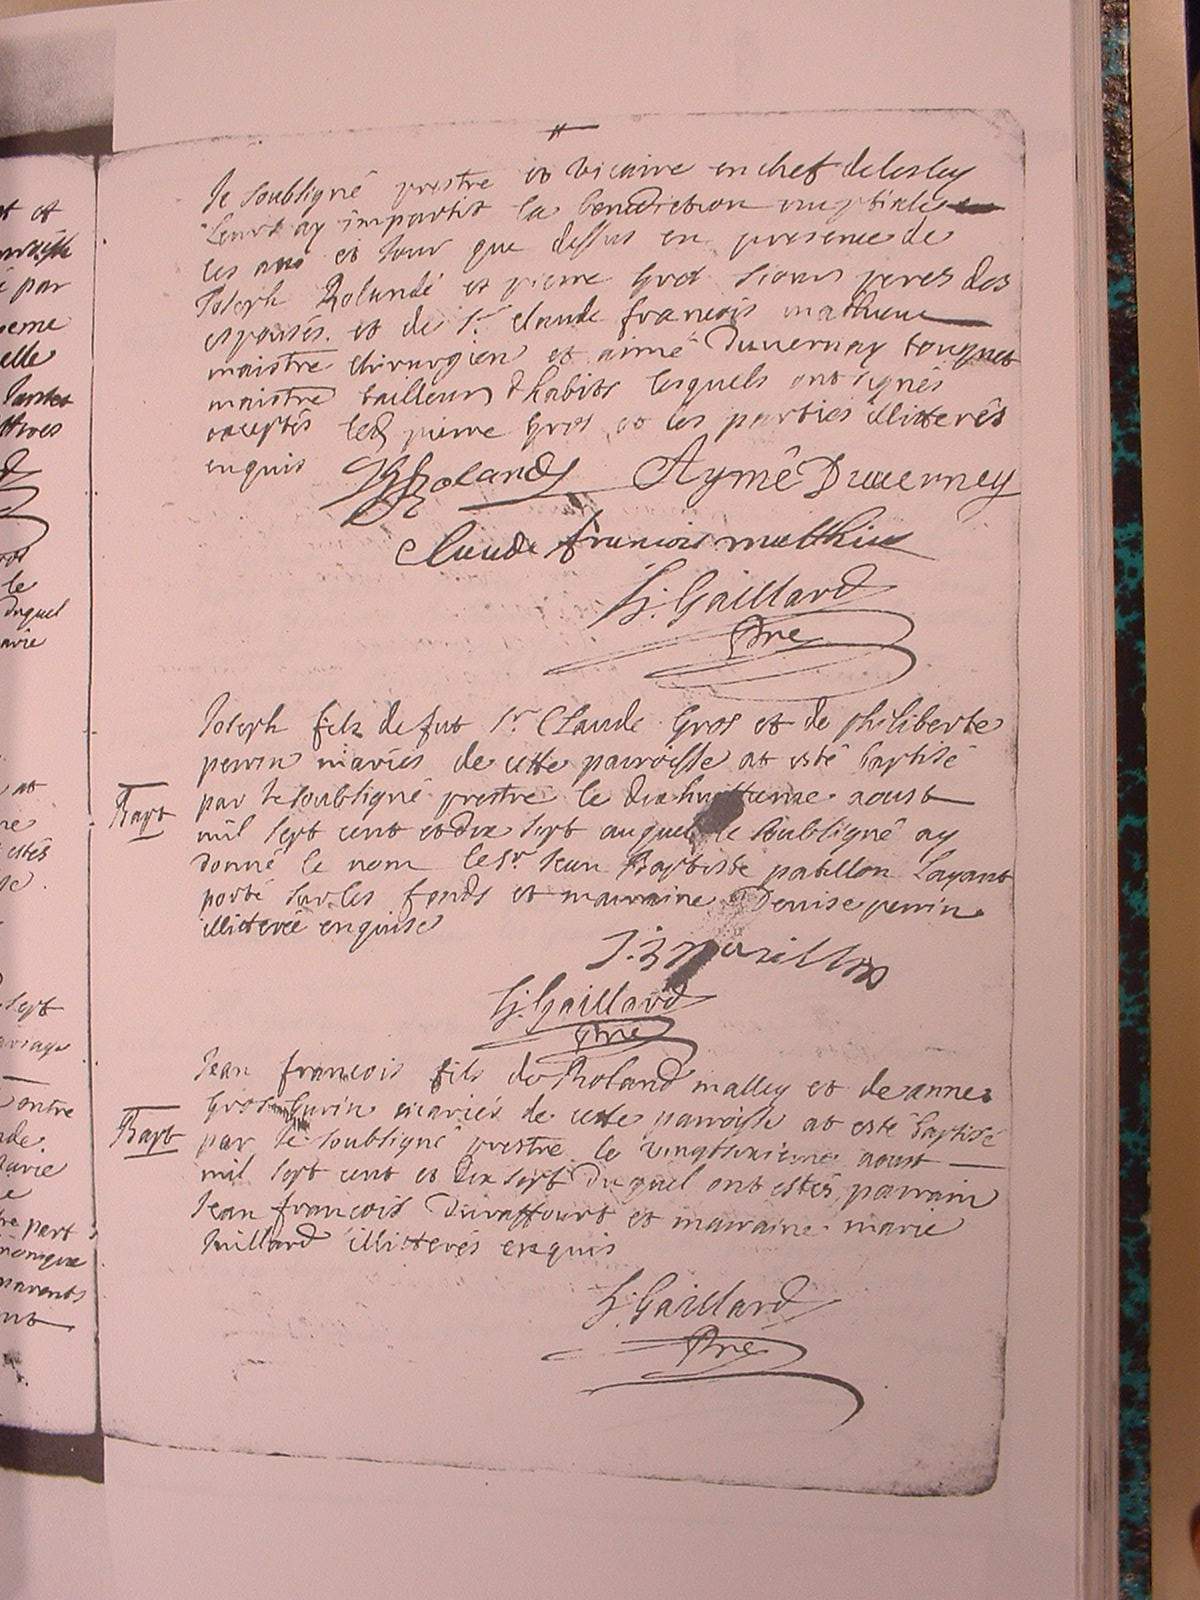 Je soubsigné prestre et vicaire en chef de
leurs ay impartit la benediction nuptiale
les ans et jour que dessus en presence de
Joseph Rolandé et pierre Gros sieurs peres des
espousés et de Sr claude francois mathieu
maistre chirurgien et aimé Duvernay
maistre tailleur d'habits lesquels ont signés
exceptés led pierre Gros et les parties illitterés
enquis Rolandy Aymé Duuerney
claude francois matthieu
Gaillard
Pre
Joseph fils de fut Sr Claude Gros et de philiberte
perrin mariés de cette parroisse at esté baptisé
Bapt par le soubsigné prestre le dix huittieme aoust
mil sept cent et dix sept auquel le soubsigné ay
donné le nom le Sr Jean Baptiste patillon Layant
porté sur les fonds et marraine Denise perrin
illitterée enquise
J. B
Gaillard
Pre
Jean francois fils de Roland malley et de anne
Gros mariés de cette parroisse at esté baptisé
Bapt par le soubsigné prestre le aoust
mil sept cent et dix sept duquel ont estés parrain
Jean francois Duraffourt et marraine marie
Juillard illitterés enquis
Gaillard
Pre
et
par
elle
le
duquel
at
estés
sept
part
parents